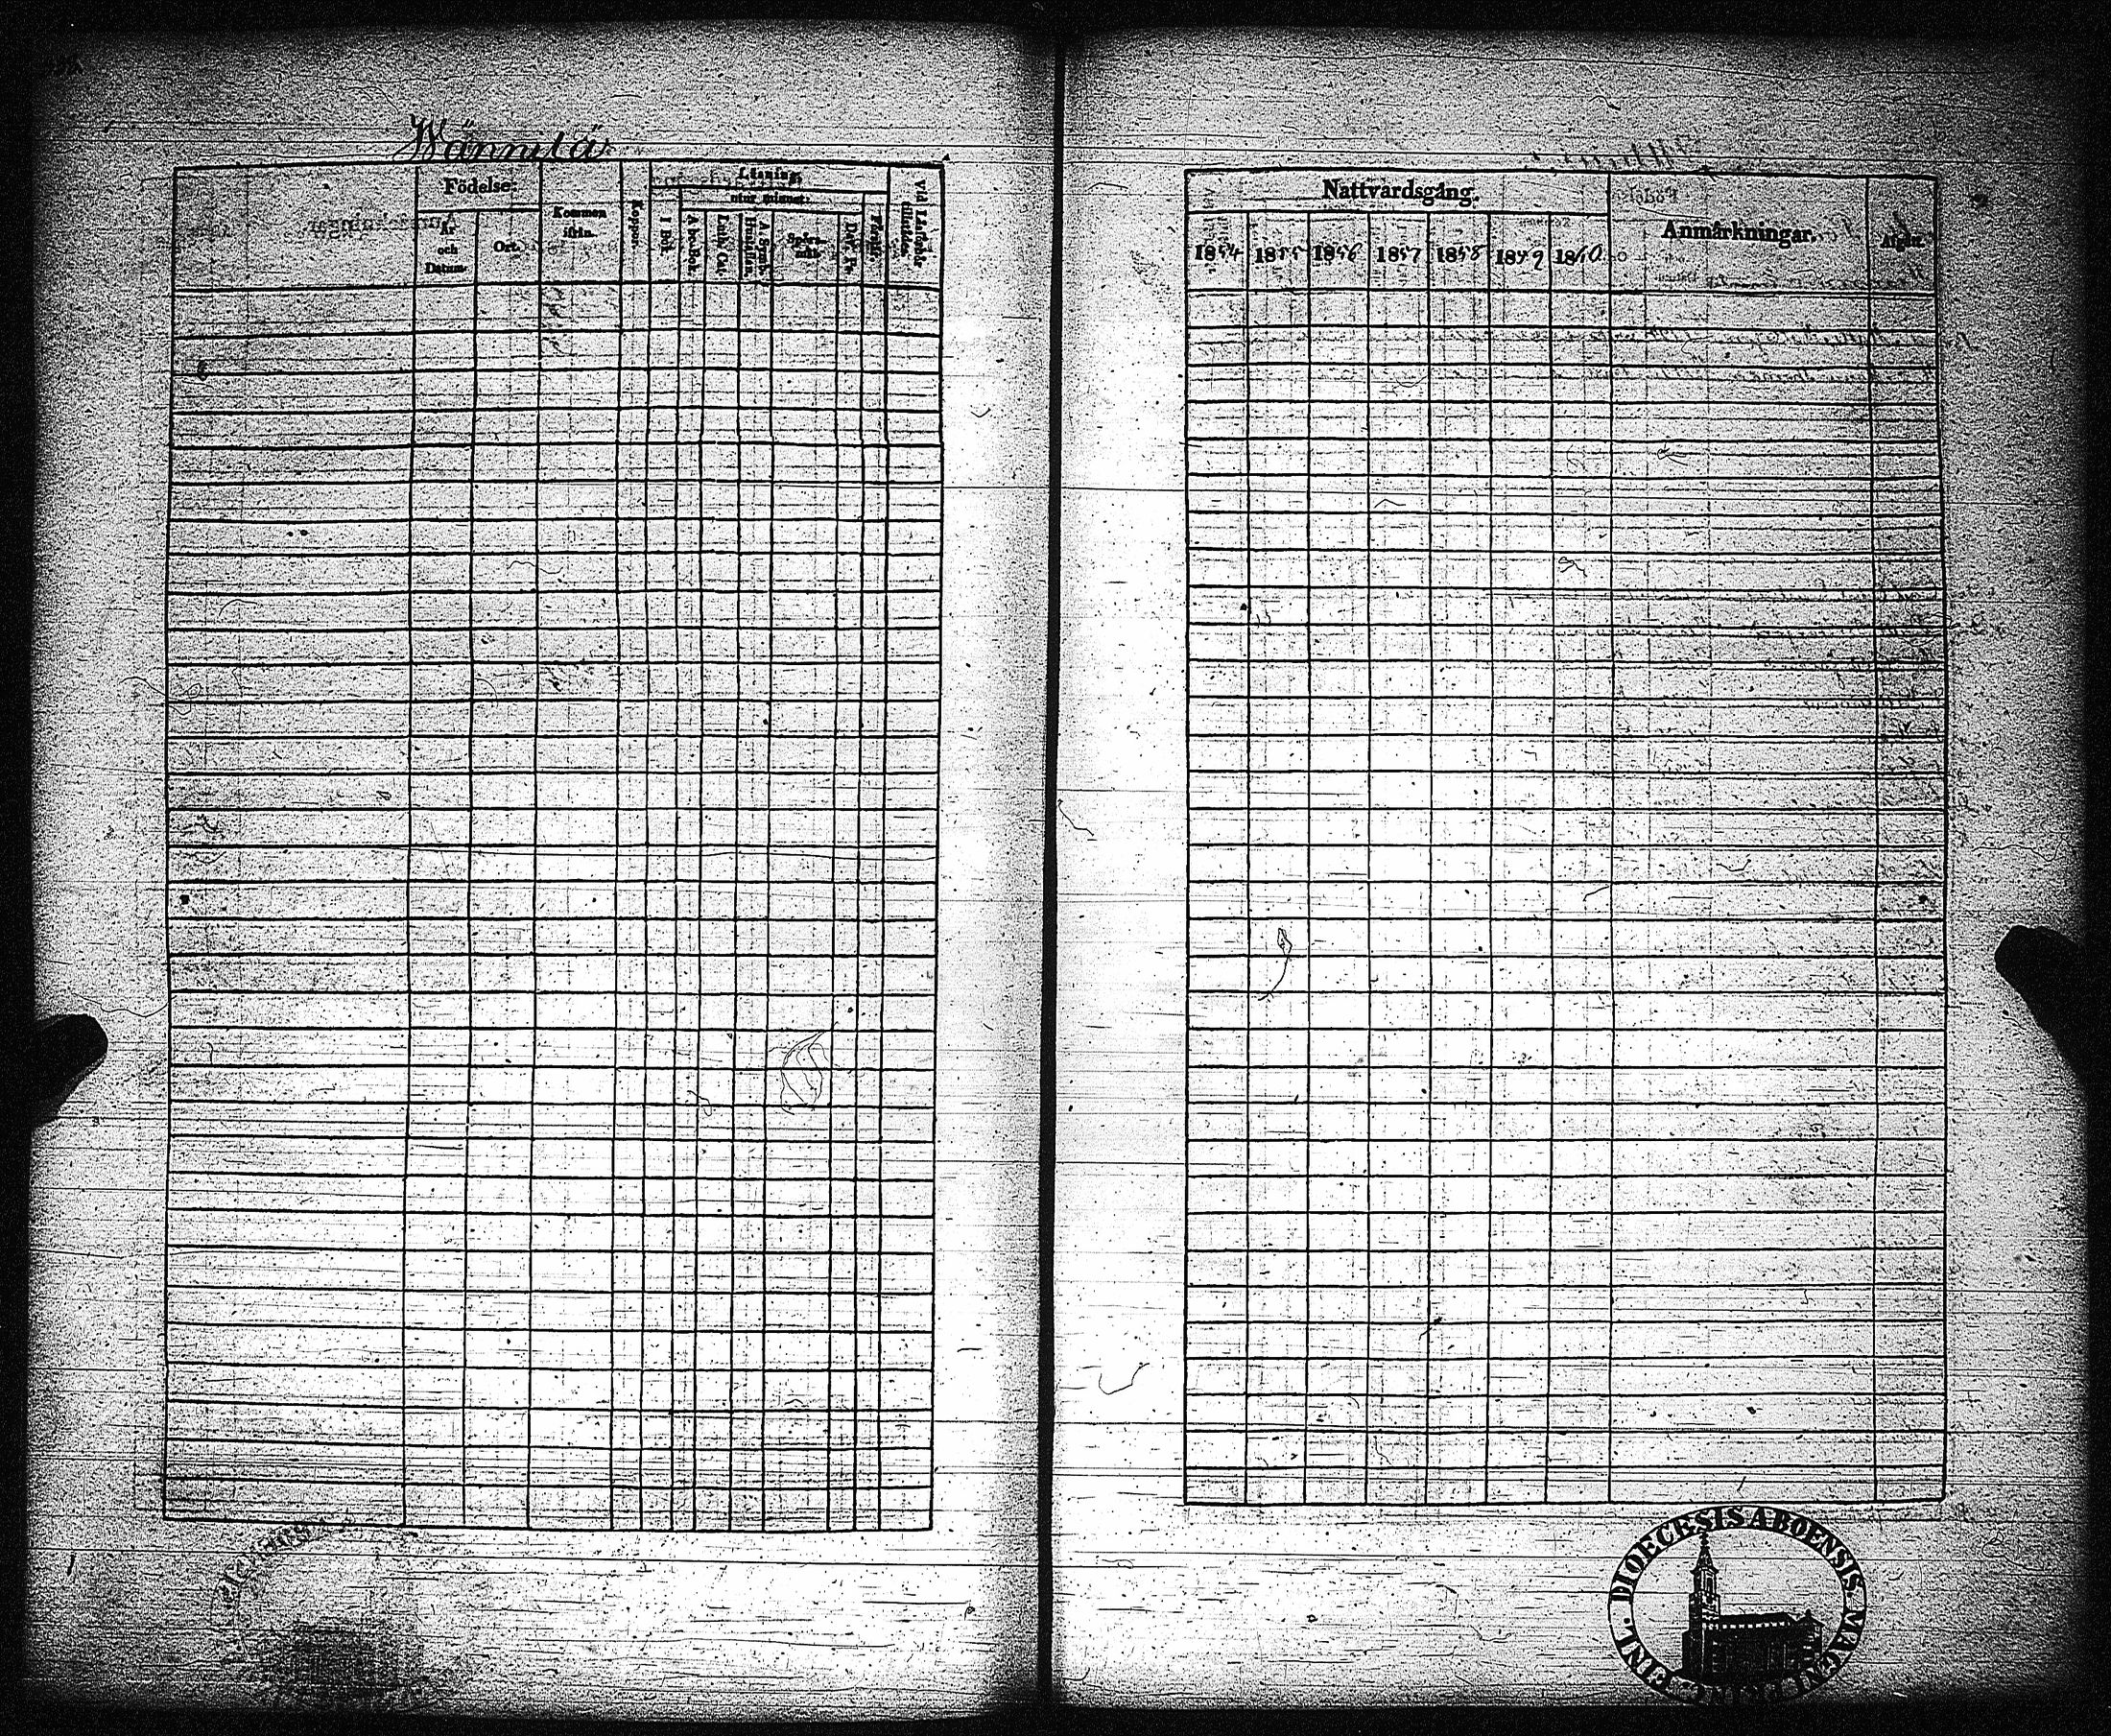 Wännilä
Födelse:
År
och
Datum.
Ort.
Kommen
ifrån.
Koppor.
Läsning,
utur minnet.
I Bok.
A b c-Bok.
Luth. Cat.
A. Symb.
Hustaflan.
Spörs-
mål.
Dav. Ps.
Förstår.
Vid Läsförhör
tillstädes.
Nattvardsgång.
1854 1855 1856 1857 1858 1859 1860
Anmärkningar.
Afgått.
FINL. DIOECESIS ABOENSIS MAGNI PRINC.